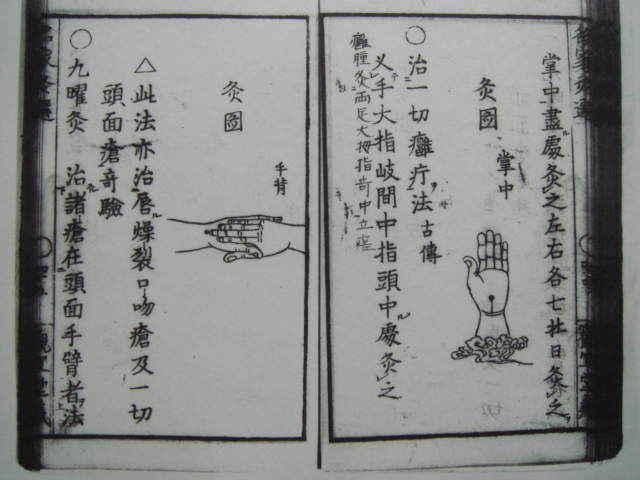 掌中盡處灸之左右各七壯日灸之
灸圖
掌中
○治一切癰疔法古傳
乂手大指歧間中指頭中處灸之
癰腫灸両足大拇指奇中立瘥
灸圖
手背
△此法亦治唇燥裂口吻瘡及一切
頭面瘡奇驗
○九曜灸 治諸瘡在頭面手臂者法